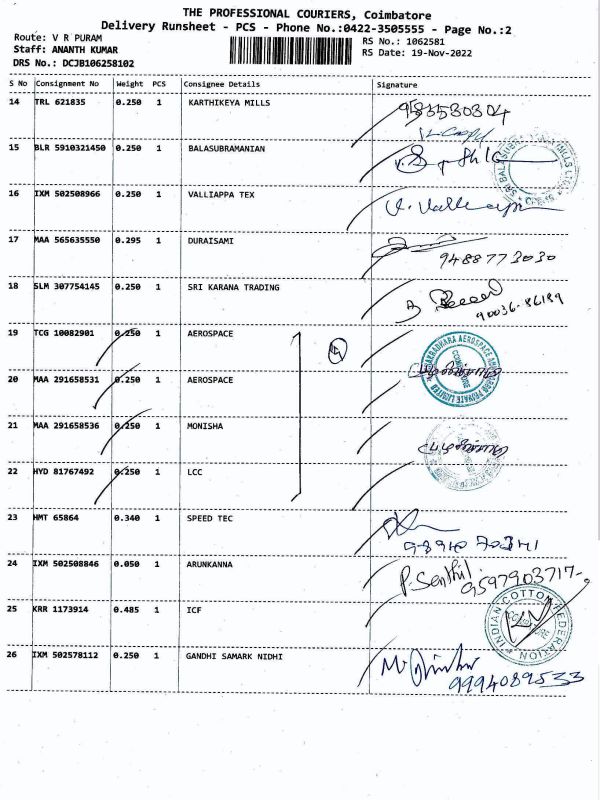 THE PROFESSIONAL COURIERS, Coimbatore
Delivery Runsheet - PCS - Phone No.:0422-3505555 - Page No.:2
Route: V R PURAM
Staff: ANANTH KUMAR
DRS No.: DCJB106258102
RS No.: 1062581
RS Date: 19-Nov-2022
S No Consignment No Weight PCS Consignee Details Signature
14 TRL 621835 0.250 1 KARTHIKEYA MILLS
15 BLR 5910321450 0.250 1 BALASUBRAMANIAN
16 IXM 502508966 0.250 1 VALLIAPPA TEX
17 MAA 565635550 0.295 1 DURAISAMI 9488773030
18 SLM 307754145 0.250 1 SRI KARANA TRADING 90036-86189
19 TCG 10082901 0.250 1 AEROSPACE 4
20 MAA 291658531 0.250 1 AEROSPACE
21 MAA 291658536 0.250 1 MONISHA
22 HYD 81767492 0.250 1 LCC
23 HMT 65864 0.340 1 SPEED TEC
24 IXM 502508846 0.050 1 ARUNKANNA P. Senthil 9597903717
25 KRR 1173914 0.485 1 ICF INDIAN COTTON FEDERATION
26 IXM 502578112 0.250 1 GANDHI SAMARK NIDHI 9994089533